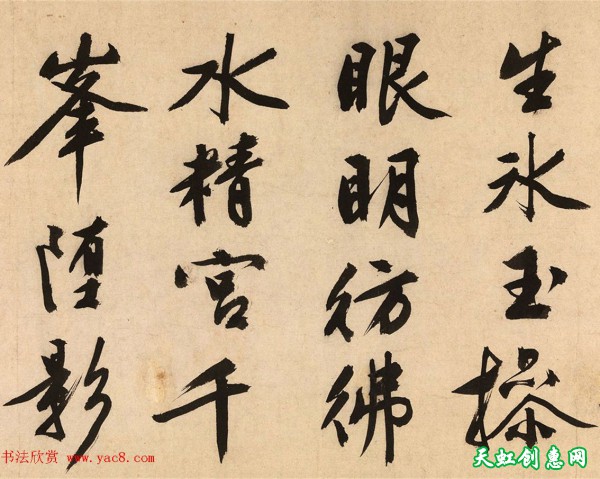 生氷玉操
眼明彷彿
水精宮千
峯堕影
书法欣赏 www.yac8.com
天虹创惠网